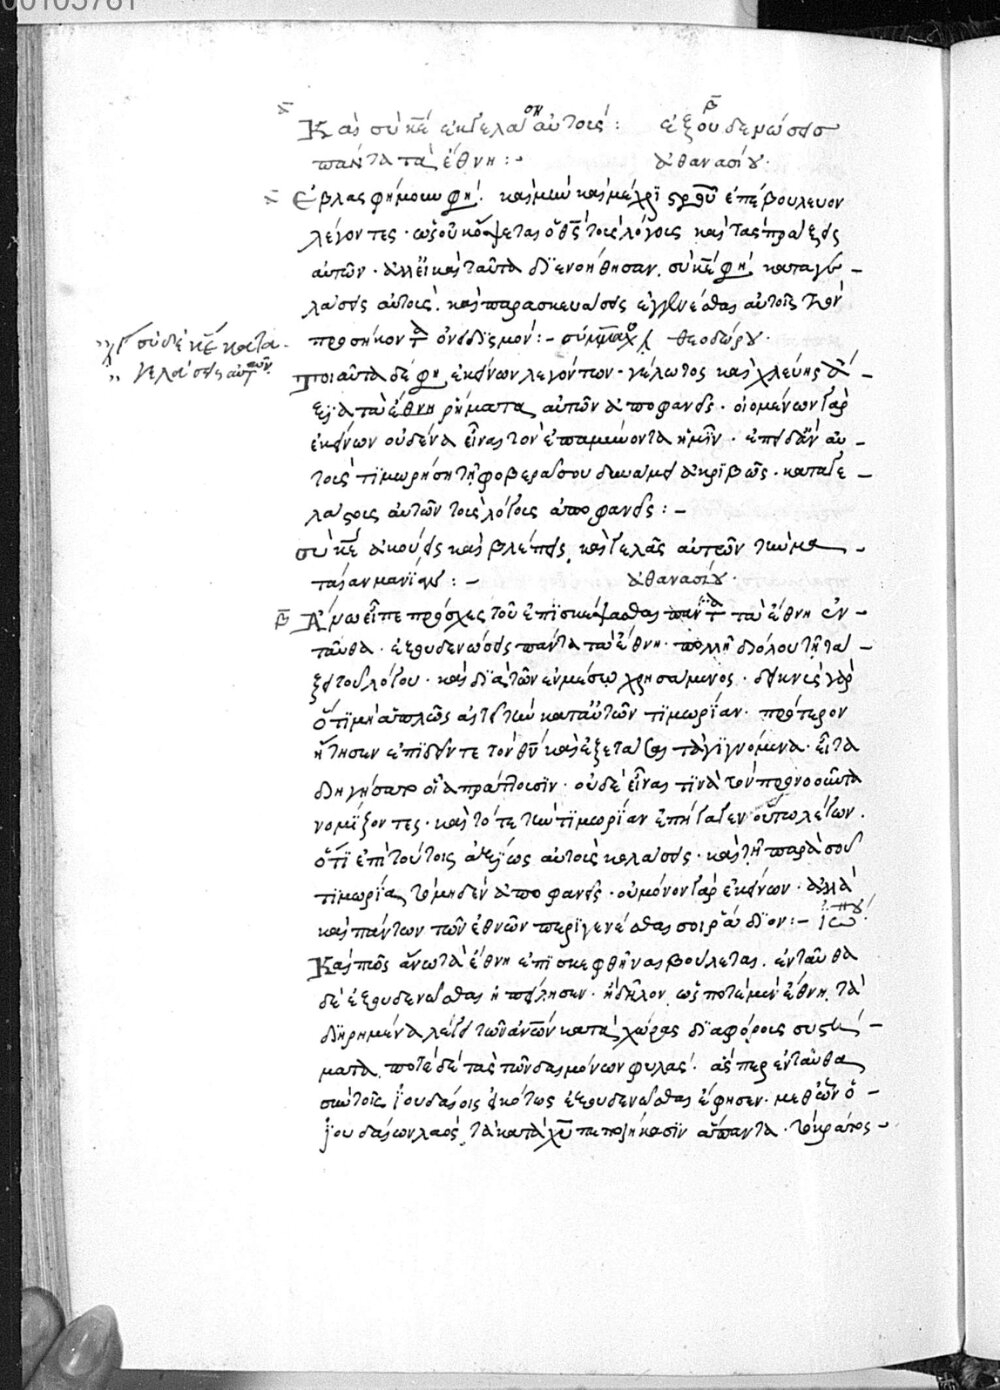 00105781
Καὶ σὺ κε ἐκγελάση αὐτούς: ἐξουδενώσεις
πάντα τὰ ἔθνη:- ἀθανασίου.
Ἐβλασφήμουν φησί. καὶ μὴν καὶ μέχρι ἐπεβούλευον
λέγοντες. ὡς οὐκ ὄψεται ὁ θς τοὺς λόγους καὶ τὰς πράξεις
αὐτῶν. ἀλλ' εἰ καὶ ταῦτα διενοήθησαν. σὺ κε φησί. καταγε-
λάσεις αὐτούς. καὶ παρασκευάσεις ἐγγενέσθαι αὐτοῖς τὸν
προσήκοντα ὀνειδισμόν:- συμμάχου θεοδώρου.
σὺ δὲ κε κατα-
γελάσεις αὐτῶν
Τοιαῦτα δέ φησιν ἐκείνων λεγόντων. γέλωτος καὶ χλεύης ἄ-
ξια τὰ ἔθνη ῥήματα αὐτῶν ἀποφανεῖς. οἰομένων γὰρ
ἐκείνων οὐδένα εἶναι τὸν ἐπαμύνοντα ἡμῖν. ἐπειδὰν αὐ-
τοὺς τιμωρήσῃ τῇ φοβερᾷ σου δυνάμει ἀκριβῶς. καταγε-
λάστους αὐτῶν τοὺς λόγους ἀποφανεῖς:-
σὺ κε ἀκούεις καὶ βλέπεις, καὶ γελᾶς αὐτῶν τὴν μα-
ταίαν μανίαν:- ἀθανασίου.
Ἄνω εἶπε πρόσχες τοῦ ἐπισκέψασθαι πάντα τὰ ἔθνη ἐν-
ταῦθα. ἐξουδενώσεις πάντα τὰ ἔθνη. πολλῇ διόλου τῇ τά-
ξει τοῦ λόγου. καὶ διὰ τῶν ἐν μέσῳ χρησάμενος. δείκνυσι γὰρ
ὅτι μὴ ἁπλῶς αἰτεῖ τὴν κατ' αὐτῶν τιμωρίαν. πρότερον
ᾔτησεν ἐπιδεῖν τε τὸν θν καὶ ἐξετάσαι τὰ γιγνόμενα. εἶτα
διηγήσατο οἷα πράττουσιν. οὐδὲ εἶναί τινα τὸν προνοοῦντα
νομίζοντες. καὶ τότε τὴν τιμωρίαν ἐπήγαγεν οὕτω λέγων.
ὅτι ἐπὶ τούτοις ἀξίως αὐτοὺς κολάσεις. καὶ τῇ παρὰ σοῦ
τιμωρίᾳ τὸ μηδὲν ἀποφανεῖς. οὐ μόνον γὰρ ἐκείνων. ἀλλὰ
καὶ πάντων τῶν ἐθνῶν περιγενέσθαι σοι ῥάδιον:-
Καὶ πῶς ἄνω τὰ ἔθνη ἐπισκεφθῆναι βούλεται. ἐνταῦθα
δὲ ἐξουδενῶσθαι ᾔτησεν. ἢ δῆλον ὡς ποτὲ μὲν ἔθνη τὰ
διῃρημένα λέγει τῶν ανων κατὰ χώρας διαφόρους συστή-
ματα, ποτὲ δὲ τὰς τῶν δαιμόνων φυλάς. ἅσπερ ἐνταῦθα
σὺν τοῖς Ἰουδαίοις εἰκότως ἐξουδενῶσθαι ἔφησεν. μεθ' ὧν ὁ
Ἰουδαίων λαός, τὰ κατὰ χυ πεποιήκασιν ἅπαντα. τὸ κράτος